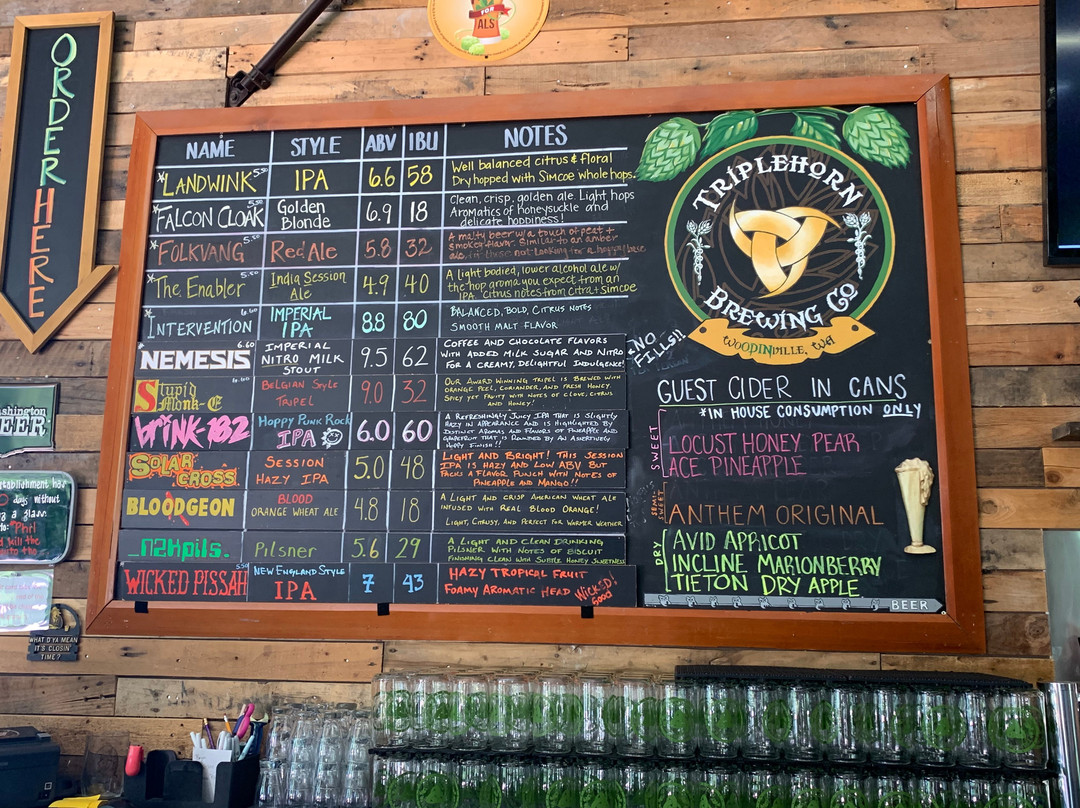 ORDER
HERE
FOR
ALS
NAME STYLE ABV IBU NOTES
*LANDWINK 5.50 IPA 6.6 58 Well balanced citrus & floral
Dry hopped with Simcoe whole hops.
*FALCON CLOAK 5.50 Golden Blonde 6.9 18 Clean, crisp, golden ale. Light hops
Aromatics of honeysuckle and
delicate hoppiness!
*FOLKVANG 5.50 Red Ale 5.8 32 A malty beer w/a touch of peat +
smoked flavor. Similar to an amber
ale, for those not looking for a hoppy brew
*The Enabler 5.50 India Session Ale 4.9 40 A light bodied, lower alcohol ale w/
the hop aroma you expect from an
IPA. Citrus notes from Citra + Simcoe
*INTERVENTION IMPERIAL IPA 8.8 80 BALANCED, BOLD, CITRUS NOTES
SMOOTH MALT FLAVOR
NEMESIS 6.60 IMPERIAL NITRO MILK STOUT 9.5 62 COFFEE AND CHOCOLATE FLAVORS
WITH ADDED MILK SUGAR AND NITRO
FOR A CREAMY, DELIGHTFUL INDULGENCE!
Stupid Monk-E 6.60 BELGIAN STYLE TRIPEL 9.0 32 OUR AWARD WINNING TRIPEL IS BREWED WITH
ORANGE PEEL, CORIANDER, AND FRESH HONEY
SPICY YET FRUITY WITH NOTES OF CLOVE, CITRUS
AND HONEY!
WINK-182 HOPPY PUNK ROCK IPA 6.0 60 A REFRESHINGLY JUICY IPA THAT IS SLIGHTLY
HAZY IN APPEARANCE AND IS HIGHLIGHTED BY
DISTINCT AROMAS AND FLAVORS OF PINEAPPLE AND
GRAPEFRUIT THAT IS ROUNDED BY AN ASSERTIVELY
HOPPY FINISH!!
SOLAR CROSS SESSION HAZY IPA 5.0 48 LIGHT AND BRIGHT! THIS SESSION
IPA IS HAZY AND LOW ABV BUT
PACKS A FLAVOR PUNCH WITH NOTES OF
PINEAPPLE AND MANGO!!
BLOODGEON BLOOD ORANGE WHEAT ALE 4.8 18 A LIGHT AND CRISP AMERICAN WHEAT ALE
INFUSED WITH REAL BLOOD ORANGE!
LIGHT, CITRUSY, AND PERFECT FOR WARMER WEATHER
n2Kpils. Pilsner 5.6 29 A LIGHT AND CLEAN DRINKING
PILSNER WITH NOTES OF BISCUIT
FINISHING CLEAN WITH SUBTLE HONEY SWEETNESS
WICKED PISSAH 5.50 NEW ENGLAND STYLE IPA 7 43 HAZY TROPICAL FRUIT
FOAMY AROMATIC HEAD WICKED! Good
*NO
FILLS!!
TRIPLEHORN
BREWING CO
WOODINVILLE, WA
GUEST CIDER IN CANS
*IN HOUSE CONSUMPTION ONLY
SWEET
LOCUST HONEY PEAR
ACE PINEAPPLE
SEMI-SWEET
ANTHEM ORIGINAL
DRY
AVID APRICOT
INCLINE MARIONBERRY
TIETON DRY APPLE
BEER
WHAT D'YA MEAN
IT'S CLOSIN'
TIME?